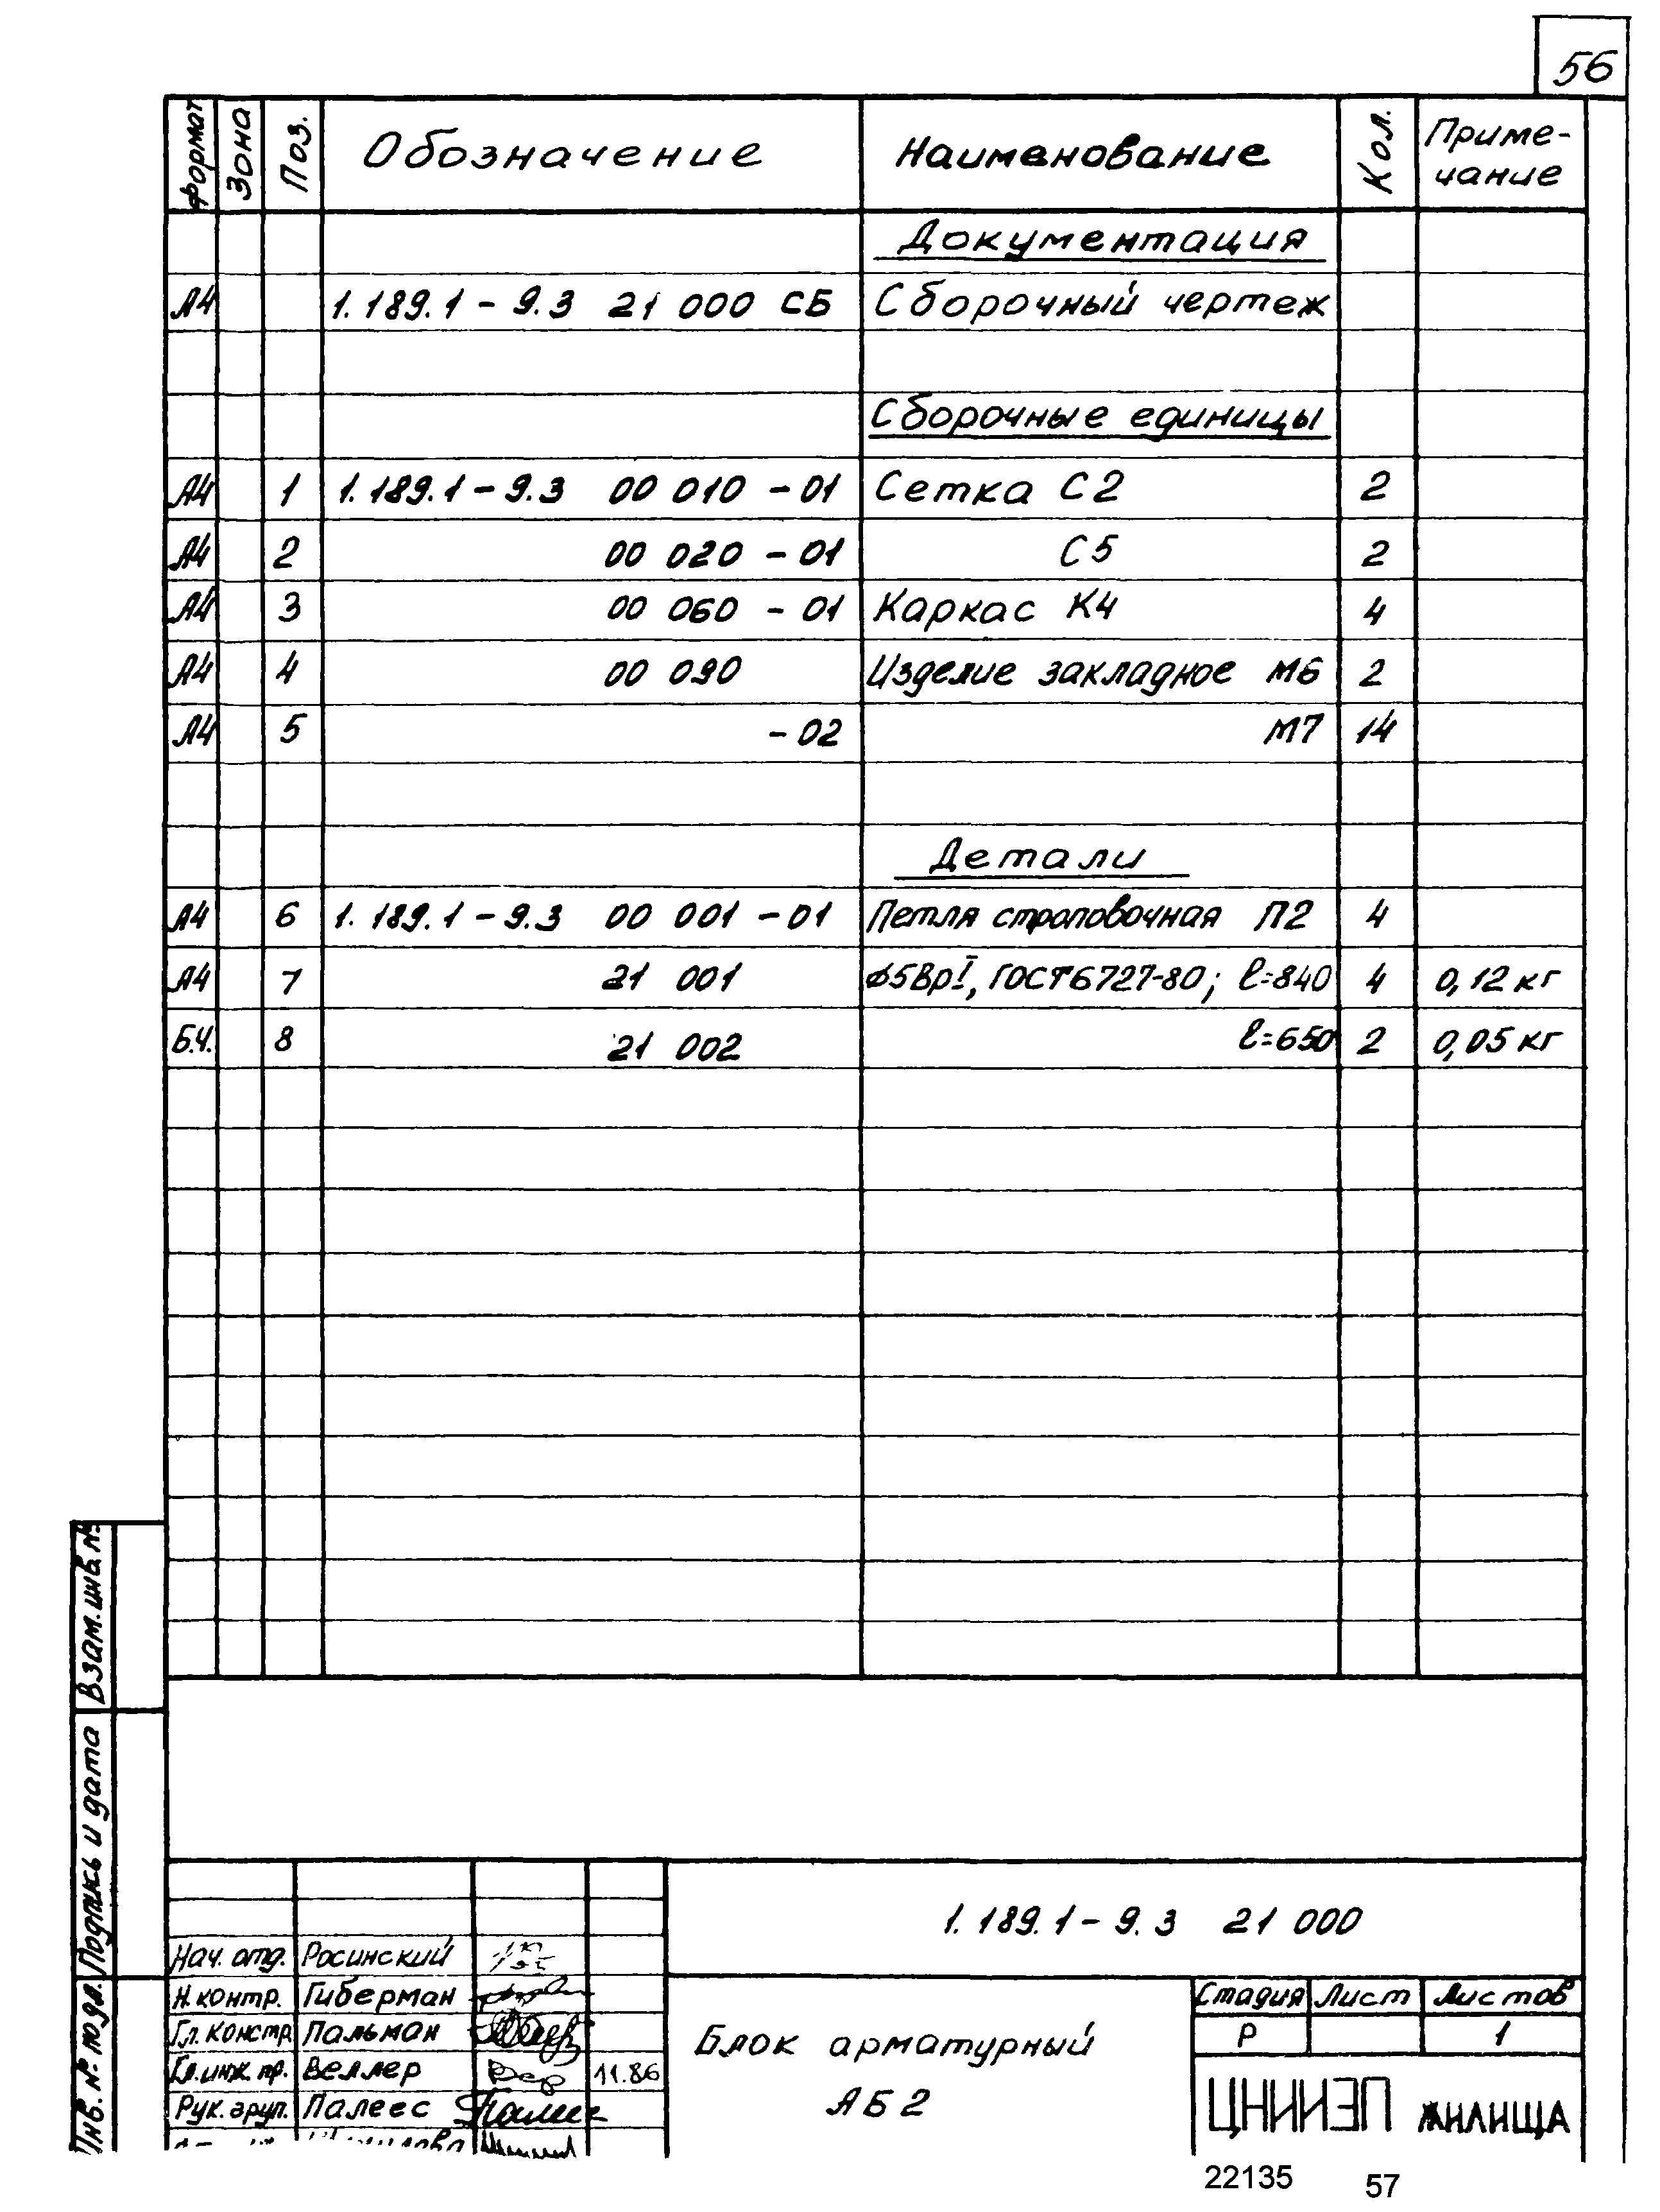 56
Формат Зона Поз. Обозначение Наименование Кол. Приме-
чание
Документация
А4 1.189.1-9.3 21 000 СБ Сборочный чертеж
Сборочные единицы
А4 1 1.189.1-9.3 00 010 -01 Сетка С2 2
А4 2 00 020 -01 С5 2
А4 3 00 060 -01 Каркас К4 4
А4 4 00 090 Изделие закладное М6 2
А4 5 -02 М7 14
Детали
А4 6 1.189.1-9.3 00 001 -01 Петля строповочная П2 4
А4 7 21 001 ø5ВрI, ГОСТ6727-80; ℓ=840 4 0,12 кг
Б.Ч. 8 21 002 ℓ=650 2 0,05 кг
Взам. инв. №
Подпись и дата
Инв. № подл.
1.189.1-9.3 21 000
Нач. отд. Росинский
Н. контр. Гиберман
Гл. констр. Пальман
Гл. инж. пр. Веллер 11.86
Рук. груп. Палеес
Блок арматурный
АБ2
Стадия Лист Листов
Р 1
ЦНИИЭП ЖИЛИЩА
22135 57